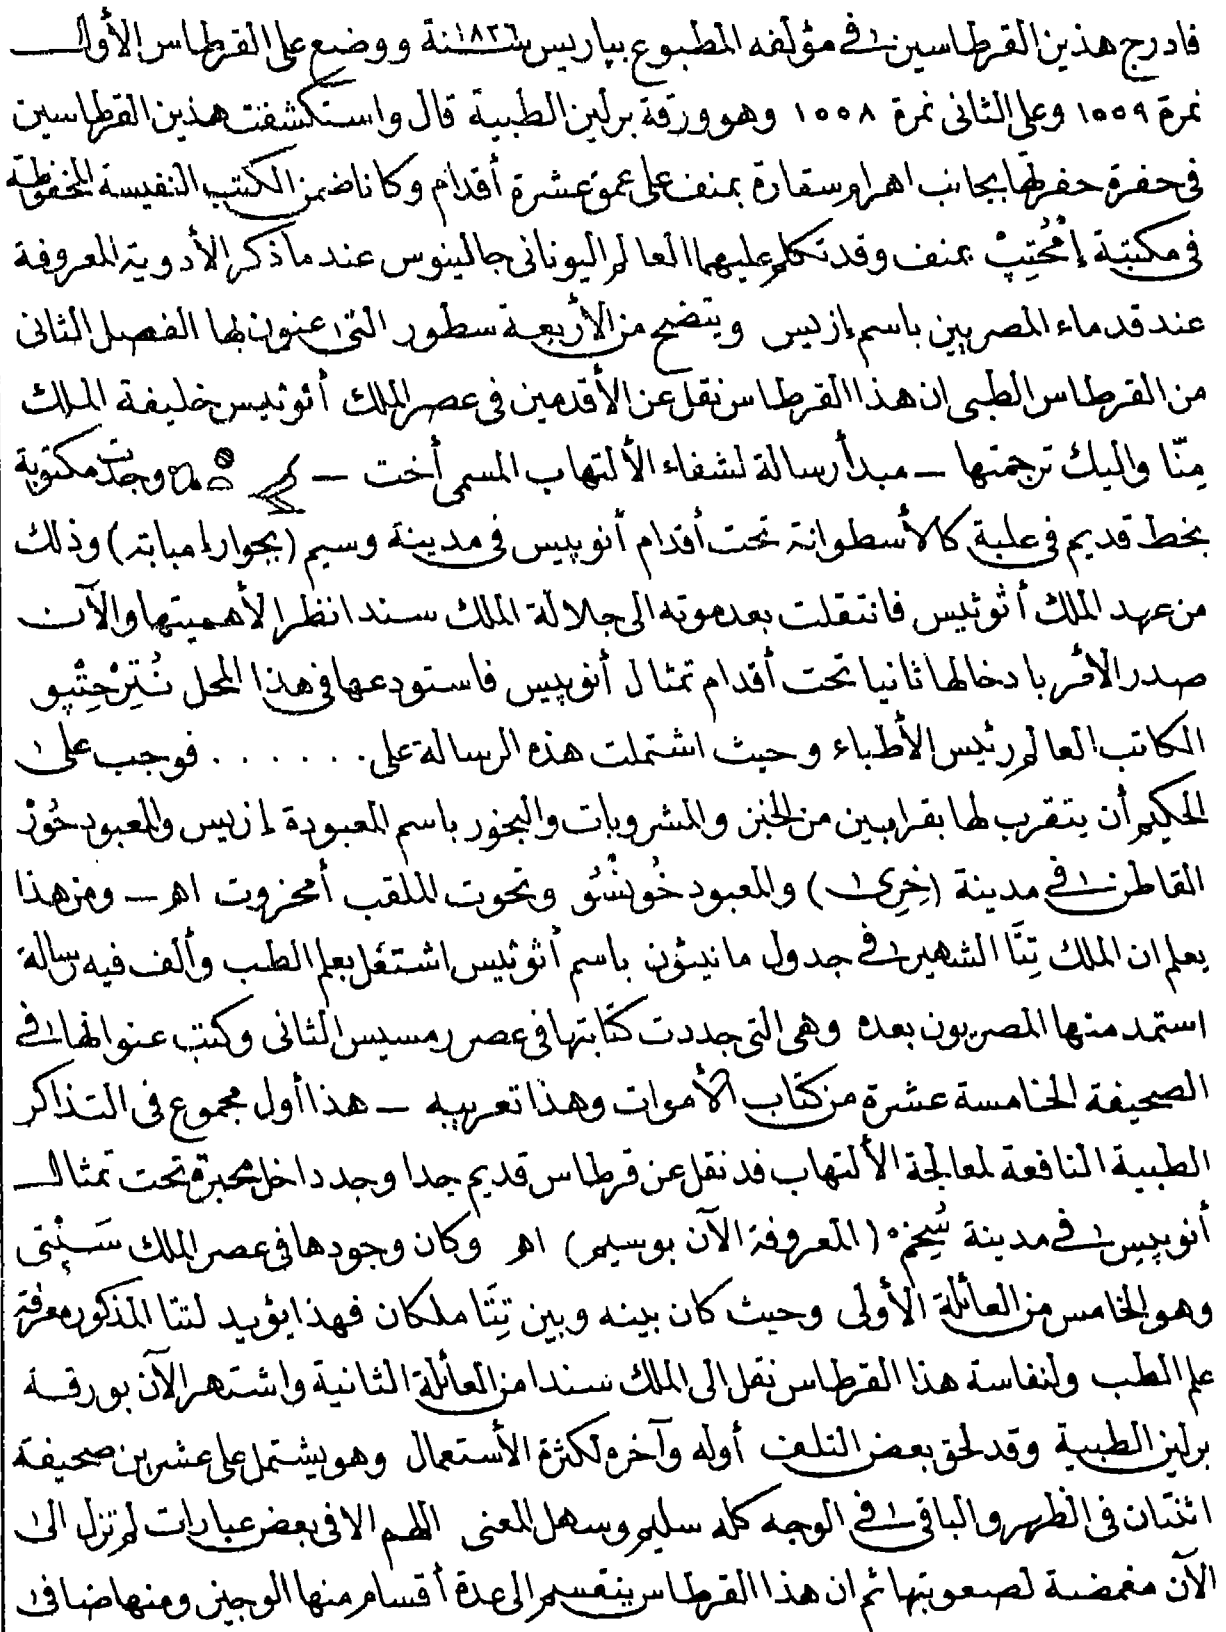 فادرج هذين القرطاسين فى مؤلفه المطبوع بباريس سنة ١٨٢٦ ووضع على القرطاس الأول
نمرة ١٥٥٩ وعلى الثانى نمرة ١٥٥٨ وهو ورقة برلين الطبية قال واستكشفت هذين القرطاسين
فى حفرة حفرتها بجانب اهرام سقارة بمنف على عمق عشرة أقدام وكانا ضمن الكتب النفيسة المحفوظة
فى مكتبة إمْحُتِبْ بمنف وقد تكلم عليهما العالم اليونانى جالينوس عند ما ذكر الأدوية المعروفة
عند قدماء المصريين باسم إزيس ويتضح من الأربعة سطور التى عنون بها الفصل الثانى
من القرطاس الطبى ان هذا القرطاس نقل عن الأقدمين فى عصر الملك أثوثيس خليفة الملك
مِنّا واليك ترجمتها – مبدأ رسالة لشفاء الألتهاب المسمى أخت – وجدت مكتوبة
بخط قديم فى علبة كالأسطوانة تحت أقدام أنوبيس فى مدينة وسيم (بجوار إمبابة) وذلك
من عهد الملك أثوثيس فانتقلت بعد موته الى جلالة الملك سندا نظرا لأهميتها والآن
صدر الأمر بادخالها ثانيا تحت أقدام تمثال أنوبيس فاستودعها فى هذا المحل نُتِرْحِتْبو
الكاتب العالم رئيس الأطباء وحيث اشتملت هذه الرسالة على . . . . . . فوجب على
الحكيم أن يتقرب لها بقرابين من الخبز والمشروبات والبخور باسم المعبودة إزيس والمعبود حُوْر
القاطن فى مدينة (خِرِى) والمعبود خُونْسُو وتحوت الملقب أمخروت اهـ – ومن هذا
يعلم ان الملك تِتَّا الشهير فى جدول مانيثون باسم أثوثيس اشتغل بعلم الطب وألف فيه رسالة
استمد منها المصريون بعده وهى التى جددت كتابتها فى عصر رمسيس الثانى وكتب عنوانها فى
الصحيفة الخامسة عشرة من كتاب الأموات وهذا تعريبه – هذا أول مجموع فى التذاكر
الطبية النافعة لمعالجة الألتهاب قد نقل عن قرطاس قديم جدا وجد داخل محبرة تحت تمثال
أنوبيس فى مدينة سُيخم (المعروفة الآن بوسيم) اهـ وكان وجودها فى عصر الملك سَپْتى
وهو الخامس من العائلة الأولى وحيث كان بينه وبين تِتَا ملكان فهذا يؤيد لتتا المذكور معرفة
علم الطب ولنفاسة هذا القرطاس نقل الى الملك سندا من العائلة الثانية واشتهر الآن بورقة
برلين الطبية وقد لحق بعض التلف أوله وآخره لكثرة الأستعمال وهو يشتمل على عشرين صحيفة
اثنتان فى الظهر والباقى فى الوجه كله سليم وسهل المعنى اللهم الا فى بعض عبارات لم تزل الى
الآن مغمضة لصعوبتها ثم ان هذا القرطاس ينقسم الى عدة أقسام منها الوجيز ومنها ضافى